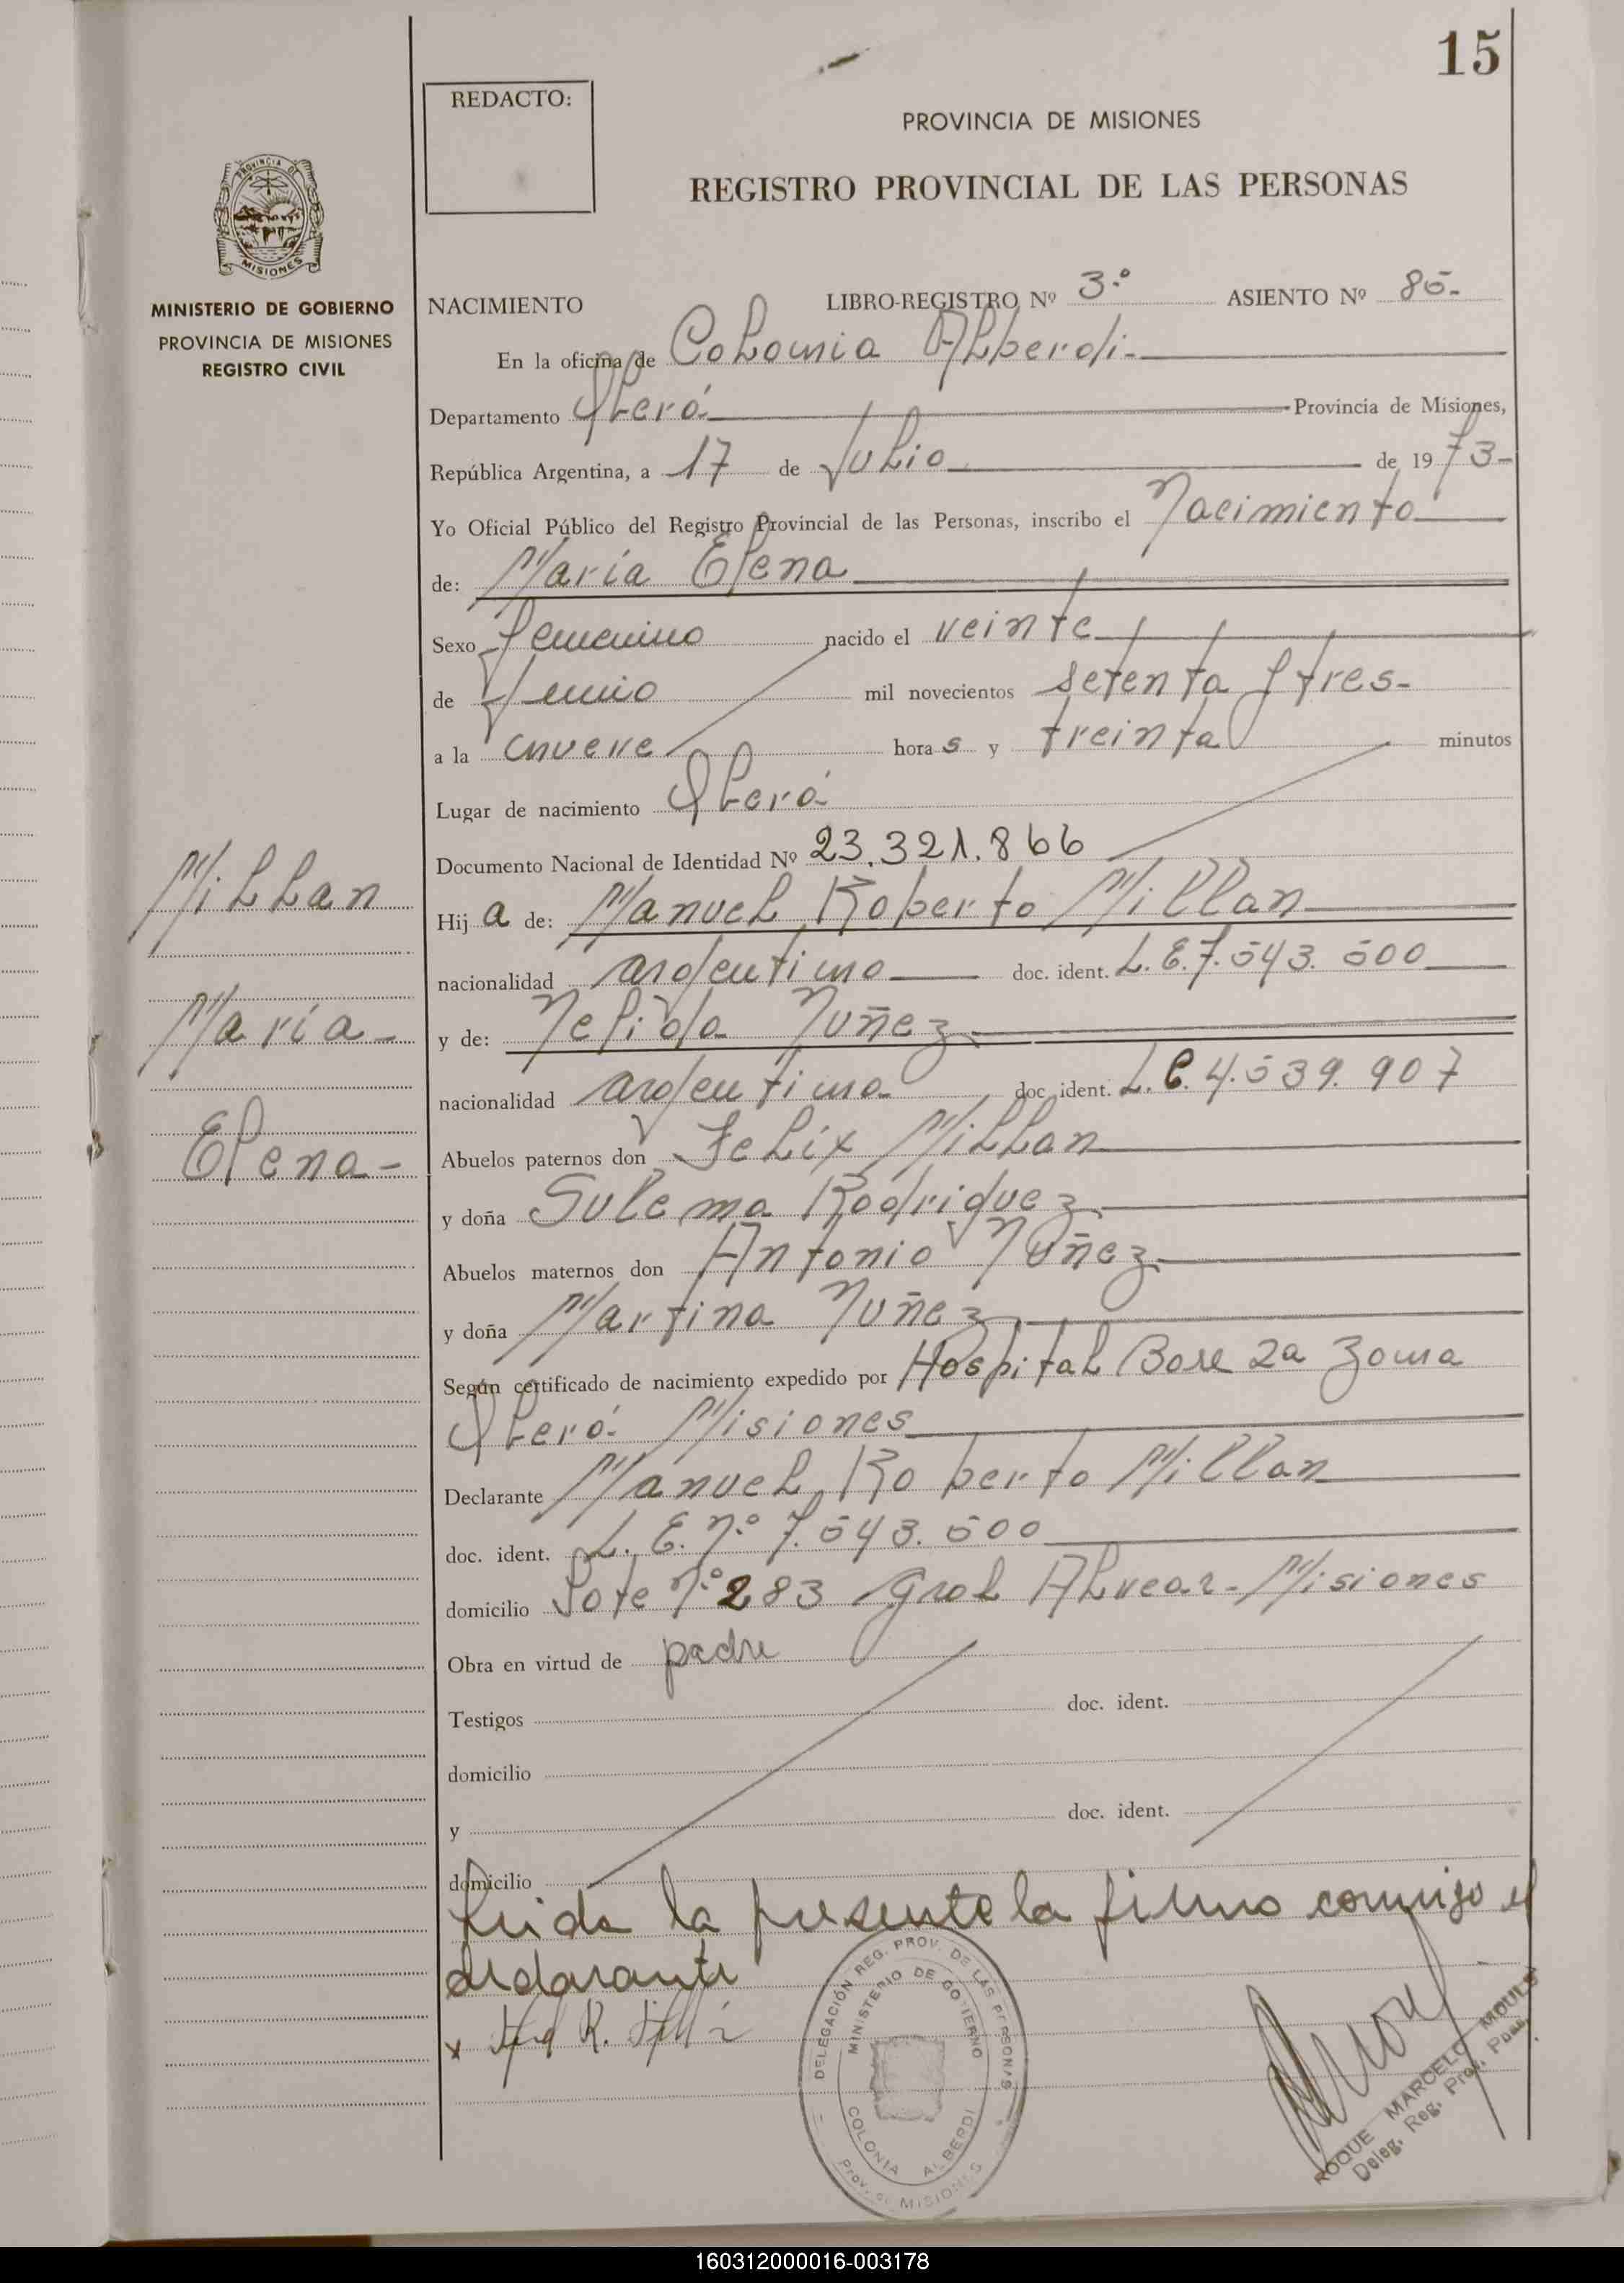 15
REDACTO:
PROVINCIA DE MISIONES
REGISTRO PROVINCIAL DE LAS PERSONAS
PROVINCIA DE
MISIONES
MINISTERIO DE GOBIERNO
PROVINCIA DE MISIONES
REGISTRO CIVIL
NACIMIENTO LIBRO-REGISTRO Nº 3.º ASIENTO Nº 85-
En la oficina de Colonia Alberdi-
Departamento Oberá Provincia de Misiones,
República Argentina, a 17 de Julio de 1973-
Yo Oficial Público del Registro Provincial de las Personas, inscribo el Nacimiento
de: María Elena
Sexo femenino nacido el veinte
de Junio mil novecientos setenta y tres-
a la nueve horas y treinta minutos
Lugar de nacimiento Oberá-
Documento Nacional de Identidad Nº 23.321.866
Millan
Hija de: Manuel Roberto Millan
nacionalidad argentino doc. ident. L.E.7.543.500
María-
y de: Nelida Nuñez
nacionalidad argentina- doc ident. L.C.4.539.907
Elena-
Abuelos paternos don Felix Millan
y doña Sulema Rodriguez
Abuelos maternos don Antonio Nuñez
y doña Martina Nuñez
Según certificado de nacimiento expedido por Hospital Base 2a Zona
Oberá- Misiones
Declarante Manuel Roberto Millan
doc. ident. L.E.N.º 7.543.500
domicilio Lote N.º 283 Gral Alvear-Misiones
Obra en virtud de padre
Testigos doc. ident.
domicilio
y doc. ident.
domicilio
Leida la presente la firma conmigo el
declarante
DELEGACIÓN REG. PROV. DE LAS PERSONAS
MINISTERIO DE GOBIERNO
COLONIA ALBERDI
Prov. de MISIONES
ROQUE MARCELO MOULS
Deleg. Reg. Prov. Pers.
160312000016-003178